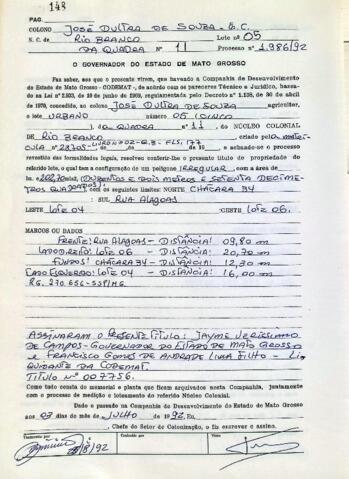 148
PAG.
COLONO JOSÉ DUTRA DE SOUZA
N. C. de RIO BRANCO Lote nº 05
DA QUADRA Nº 11 Processo nº 1.986/92
O GOVERNADOR DO ESTADO DE MATO GROSSO
Faz saber, aos que o presente virem, que havendo a Companhia de Desenvolvimento
do Estado de Mato Grosso - CODEMAT -, de acôrdo com os pareceres Técnico e Jurídico, basea-
do na Lei nº 2.933, de 16 de junho de 1969, regulamentada pelo Decreto nº 1.138, de 30 de abril
de 1970, concedido, ao colono JOSÉ DUTRA DE SOUZA agricultor,
o lote URBANO nº 05 (CINCO
), da QUADRA nº 11, do NÚCLEO COLONIAL
DE RIO BRANCO criado pela a MATRÍ-
CULA nº 28705-LIVRO nº 02-G.B-FLS. 177
e acusado-se o processo
revestido das formalidades legais, resolveu conferir-lhe o presente título de propriedade do
referido lote, o qual tem a configuração de um polígono IRREGULAR, com a área de
ha. 202,70m2 (DUZENTOS E DOIS METROS E SETENTA DECÍME-
TROS QUADRADOS), com os seguintes limites: NORTE CHÁCARA 34
: SUL RUA ALAGOAS
LESTE LOTE 04 OESTE LOTE 06.
MARCOS OU DADOS
FRENTE: RUA ALAGOAS - DISTÂNCIA: 09,80 m
LADO DIREITO: LOTE 06 - DISTÂNCIA: 20,70 m
FUNDOS: CHÁCARA 34 - DISTÂNCIA: 12,30 m
LADO ESQUERDO: LOTE 04 - DISTÂNCIA: 16,00 m
RG. 270.656-SSP/MG.
ASSINARAM O PRESENTE TÍTULO: JAYME VERISSIMO
DE CAMPOS-GOVERNADOR DO ESTADO DE MATO GROSSO
e FRANCISCO GOMES DE ANDRADE LIMA FILHO - LI-
QUIDANTE DA CODEMAT.
TÍTULO Nº 007756.
Como tudo consta do memorial e planta que ficam arquivados nesta Companhia, juntamente
com o processo de medição e loteamento do referido Núcleo Colonial.
Dado e passado na Companhia de Desenvolvimento do Estado de Mato Grosso
aos 03 dias do mês de JULHO de 1992. Eu,
, Chefe do Setor de Colonização, o fiz escrever e assino.
Transcrito por Conferido por Visto
/8/92